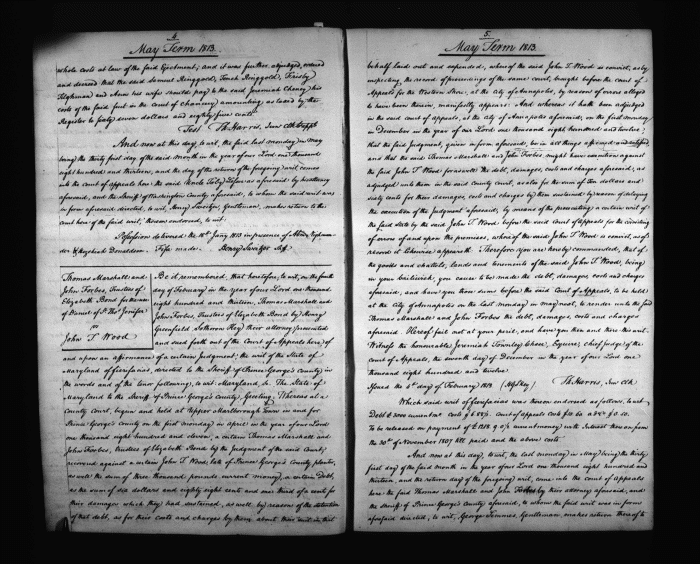 4.
May Term 1813.
whole costs at law of the said Ejectment; and it was further adjudged, ordered
and decreed that the said Samuel Ringgold, Tench Ringgold, Frisby
Tilghman and Anna his wife should pay to the said Jeremiah Cheney his
costs of the said suit in the court of chancery amounting as taxed by the
Register to sixty seven dollars and eighty five cents.
Test Th: Harris, Junr Clk
And now at this day, to wit, the said last monday in May
being the thirty first day of the said month in the year of our Lord one thousand
eight hundred and thirteen, and the day of the return of the foregoing writ comes
into the court of appeals here the said aforesaid by his attorney
aforesaid, and the Sheriff of Washington county aforesaid, to whom the said writ was
in form aforesaid directed, to wit, Henry Sweitzer Gentleman, makes return to the
court here of the said writ, thus endorsed, to wit.
Possession delivered the 14th June 1813 in presence of
der & Hezekiah Donaldson. Fifa made. Henry Sweitzer Shff
Thomas Marshall and
John Forbes, Trustees of
Elizabeth Bond for the use
of Daniel of St Thos Jenifer
vs
John T Wood
Be it remembered, that heretofore, to wit, on the fourth
day of February in the year of our Lord one thousand
eight hundred and thirteen, Thomas Marshall and
John Forbes, Trustees of Elizabeth Bond by Henry
Greenfield Sothoron Key their attorney prosecuted
and sued forth out of the Court of Appeals here, of
and upon an affirmance of a certain judgment, the writ of the State of
Maryland of fieri facias, directed to the Sheriff of Prince George's county in
the words and of the tenor following, to wit. Maryland, Sc. The State of
Maryland to the Sheriff of Prince George's County, Greeting. Whereas at a
County Court, begun and held at Upper Marlborough Town in and for
Prince George's county on the first monday in April in the year of our Lord
one thousand eight hundred and eleven, a certain Thomas Marshall and
John Forbes, trustees of Elizabeth Bond by the judgment of the said Court,
recovered against a certain John T Wood, late of Prince George's County planter,
as well the sum of three thousand pounds current money, a certain Debt,
as the sum of six dollars and eighty eight cents and one third of a cent for
their damages which they had sustained, as well by reason of the detention
of that debt, as for their costs and charges by them about their suit in that
5.
May Term 1813.
behalf laid out and expended, whereof the said John T Wood is convict, as by
inspecting the record of proceedings of the same court, brought before the court of
Appeals for the Western Shore, at the city of Annapolis, by reason of errors alleged
to have been therein, manifestly appears. And whereas it hath been adjudged
in the said court of appeals, at the city of Annapolis aforesaid, on the first monday
in December in the year of our Lord one thousand eight hundred and twelve,
that the said judgment, given in form aforesaid, be in all things affirmed and ratified,
and that the said Thomas Marshall and John Forbes, might have execution against
the said John T Wood for as well the debt, damages, costs and charges aforesaid, as
adjudged unto them in the said county court, as also for the sum of ten dollars and
sixty cents for their damages, costs and charges by them sustained by reason of delaying
the execution of the judgment aforesaid, by means of the prosecuting a certain writ of
the said State by the said John T Wood before the said court of Appeals for the correcting
of errors of and upon the premises, whereof the said John T Wood is convict, as of
record it likewise appeareth. Therefore you are hereby commanded, that of
the goods and chattels, lands and tenements of the said John T Wood, being
in your bailiwick, you cause to be made the debt, damages, costs and charges
aforesaid, and have you those sums before the said Court of Appeals, to be held
at the city of Annapolis on the last monday in may next, to render unto the said
Thomas Marshall and John Forbes the debt, damages, costs and charges
aforesaid. Hereof fail not at your peril, and have you then and there this writ.
Witness the honourable Jeremiah Townley Chase, Esquire, chief judge of the
court of Appeals, the seventh day of December in the year of our Lord one
thousand eight hundred and twelve
Issued the 4th day of February 1813. Th: Harris, Junr Clk
Which said writ of fieri facias was thereon endorsed as follows, to wit.
To be released on payment of with Interest thereon from
the 30th of November 1807 till paid and the above costs.
And now at this day, to wit, the last monday in May, being the thirty
first day of the said month in the year of our Lord one thousand eight hundred and
thirteen, and the return day of the foregoing writ, come into the Court of Appeals
here the said Thomas Marshall and John Forbes by their attorney aforesaid, and
the Sheriff of Prince George's County aforesaid, to whom the said writ was in form
aforesaid directed, to wit, George Semmes, Gentleman, makes return thereof to